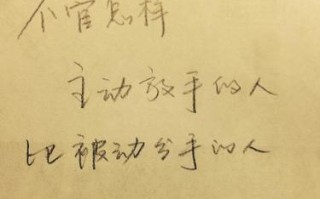 不管怎样
主动放手的人
比被动分手的人